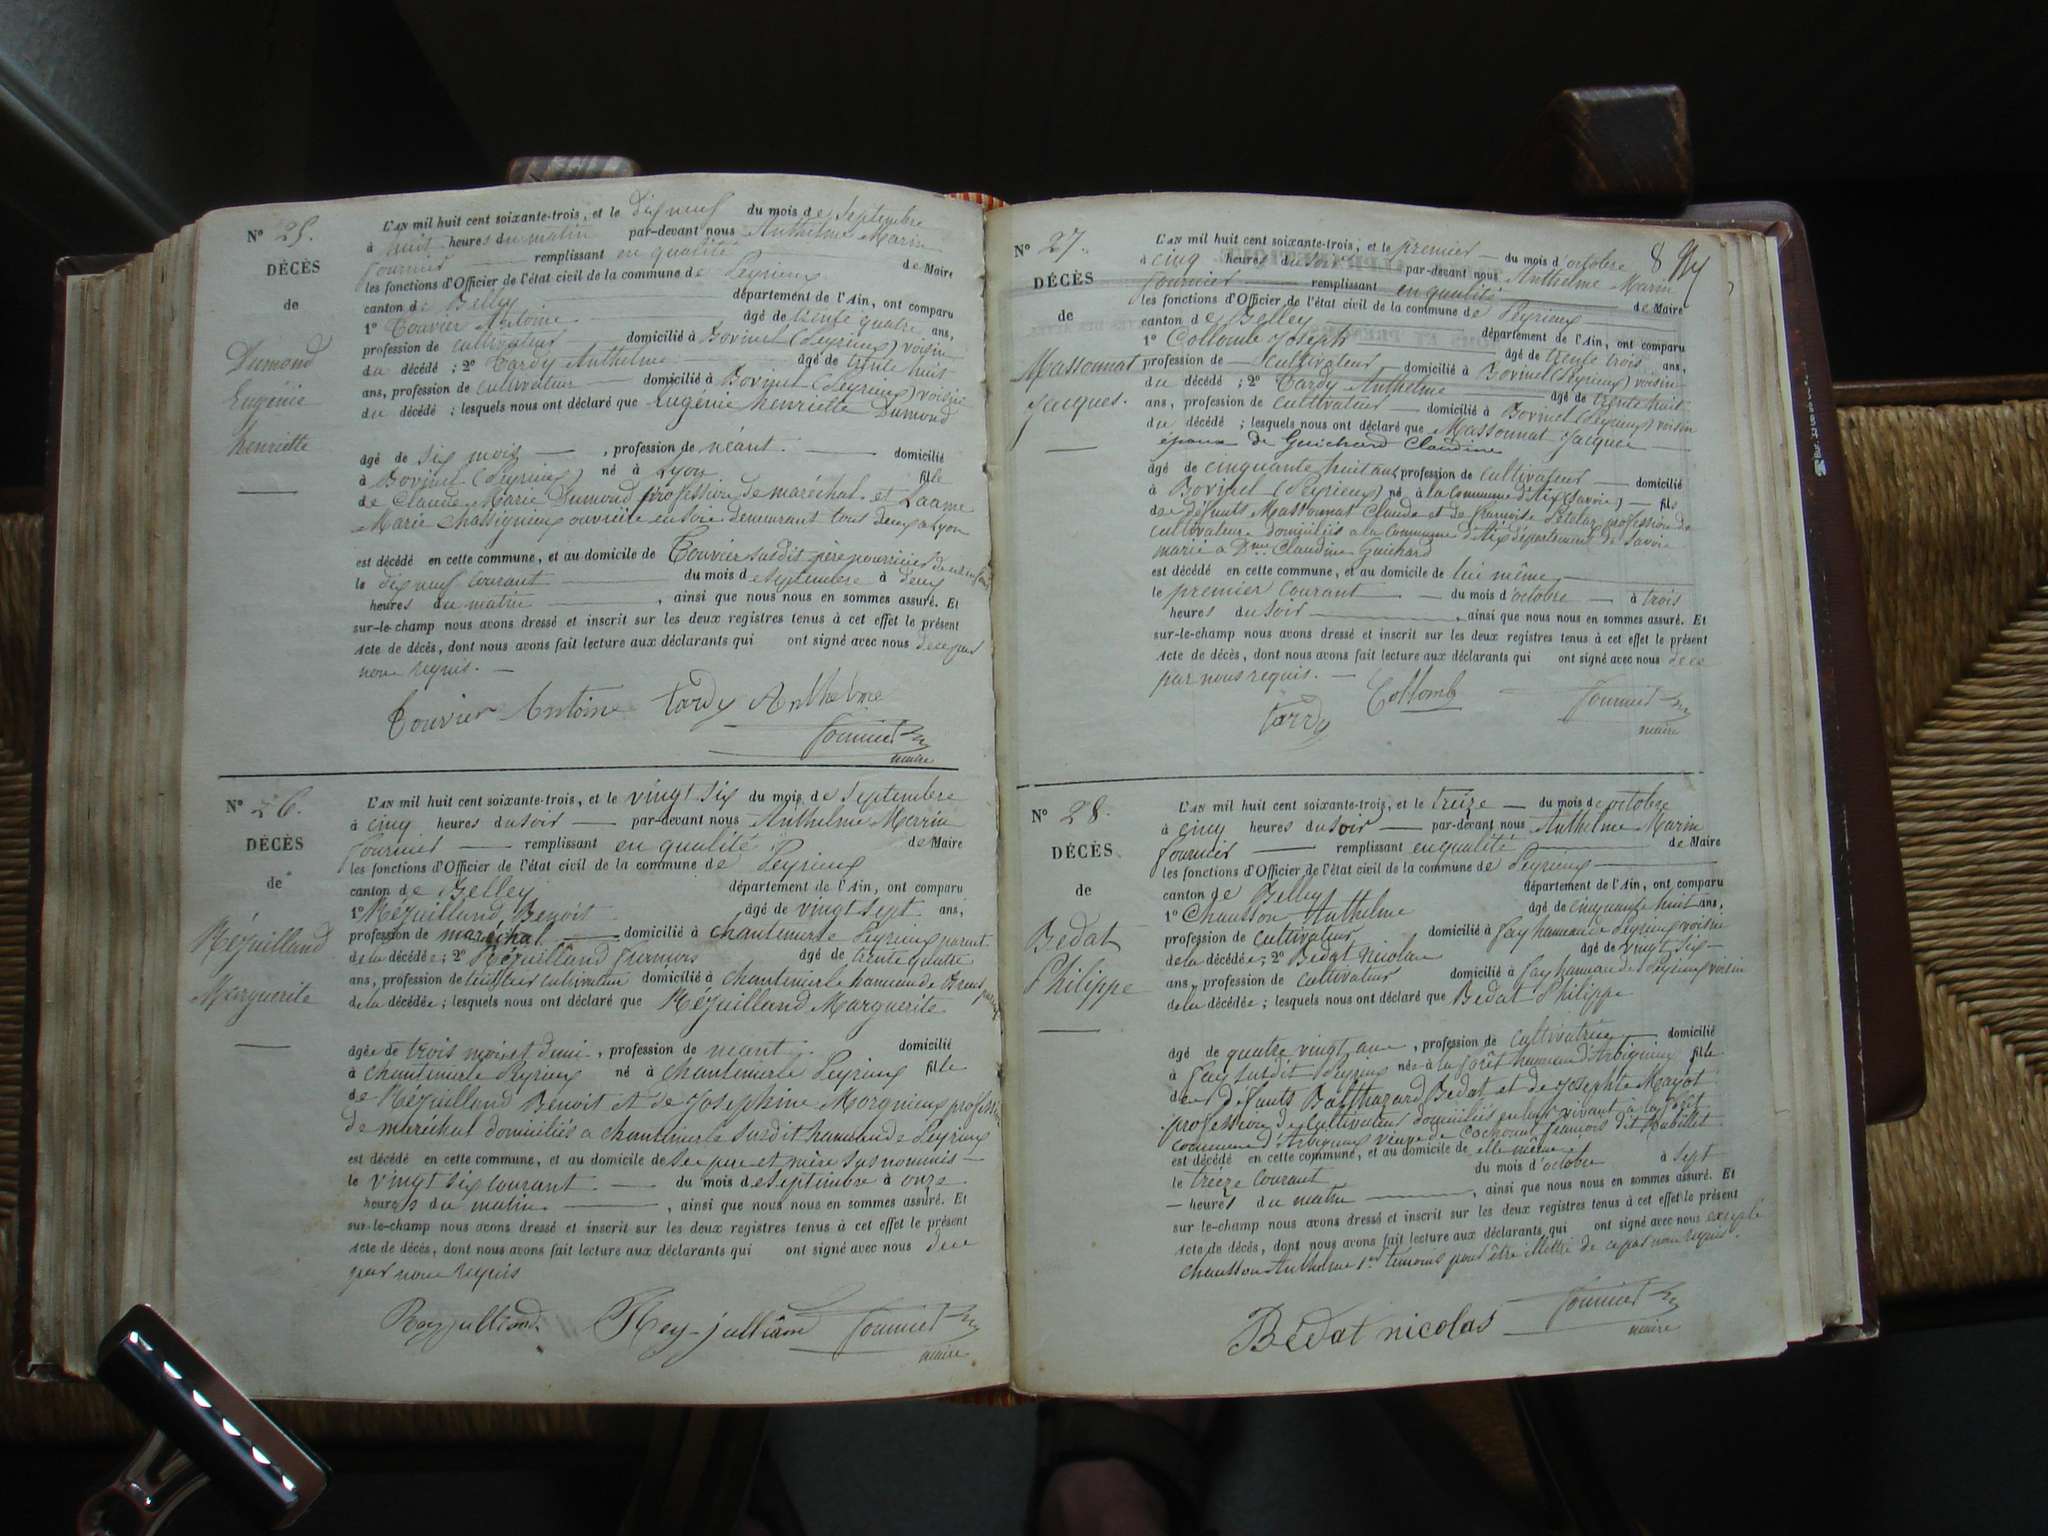 N° 25.
DÉCÈS
de
Dumond
Eugénie
henriette
L'AN mil huit cent soixante-trois, et le dix neuf du mois de Septembre
à huit heures du matin par-devant nous Anthelme Marin
fournier remplissant en qualité de Maire
les fonctions d'Officier de l'état civil de la commune de Peyrieux
canton de Belley département de l'Ain, ont comparu
1° Couvier Antoine âgé de trente quatre ans,
profession de cultivateur domicilié à Bovinel (Peyrieux) voisin
du décédé ; 2° Tardy Anthelme âgé de trente huit
ans, profession de cultivateur domicilié à Bovinel (Peyrieux) voisin
du décédé ; lesquels nous ont déclaré que Eugénie henriette Dumond
âgé de six mois , profession de néant. domicilié
à Bovinel (Peyrieux) né à Lyon fille
de Claude Marie Dumond profession de maréchal et
Marie Chassignieux ouvrière en soie demeurant tout deux a Lyon
est décédé en cette commune, et au domicile de Couvier susdit père nourricier
le dix neuf courant du mois de septembre à deux
heures du matin , ainsi que nous nous en sommes assuré. Et
sur-le-champ nous avons dressé et inscrit sur les deux registres tenus à cet effet le présent
acte de décès, dont nous avons fait lecture aux déclarants qui ont signé avec nous de ce par
nous requis.
Couvier Antoine Tardy Anthelme
fournier
maire
N° 26.
DÉCÈS
de
Réjuilland
Marguerite
L'AN mil huit cent soixante-trois, et le vingt six du mois de septembre
à cinq heures du soir par-devant nous Anthelme Marin
fournier remplissant en qualité de Maire
les fonctions d'Officier de l'état civil de la commune de Peyrieux
canton de Belley département de l'Ain, ont comparu
1° Réjuilland Benoit âgé de vingt sept ans,
profession de maréchal domicilié à chantemerle Peyrieux parent
de la décédée ; 2° Réjuilland françois âgé de trente quatre
ans, profession de cultivateur domicilié à chantemerle hameau de
de la décédée ; lesquels nous ont déclaré que Réjuilland Marguerite
âgée de trois mois et demi , profession de néant . domicilié
à chantemerle Peyrieux né à chantemerle Peyrieux fille
de Réjuilland Benoit et de Joséphine Morgnieux profession
de maréchal domiciliés a chantemerle susdit hameau de Peyrieux
est décédé en cette commune, et au domicile de ses pere et mère susnommés
le vingt six courant du mois de septembre à onze
heures du matin. , ainsi que nous nous en sommes assuré. Et
sur-le-champ nous avons dressé et inscrit sur les deux registres tenus à cet effet le présent
acte de décès, dont nous avons fait lecture aux déclarants qui ont signé avec nous de ce
par nous requis
Reyjulliand Rey-julliand fournier
maire
N° 27.
DÉCÈS
de
Massonnat
Jacques.
L'AN mil huit cent soixante-trois, et le premier du mois d'octobre
à cinq heures du soir par-devant nous Anthelme Marin
fournier remplissant en qualité de Maire
les fonctions d'Officier de l'état civil de la commune de Peyrieux
canton de Belley département de l'Ain, ont comparu
1° Collomb Joseph âgé de trente trois ans,
profession de Cultivateur domicilié à Bovinel (Peyrieux) voisin
du décédé ; 2° Tardy Anthelme âgé de trente huit
ans, profession de cultivateur domicilié à Bovinel (Peyrieux) voisin
du décédé ; lesquels nous ont déclaré que Massonnat Jacques
époux de Guichard Claudine
âgé de cinquante huit ans profession de cultivateur domicilié
à Bovinel (Peyrieux) né à la commune d'Aix (Savoie) fils
de défunts Massonnat Claude et de françoise profession de
cultivateur domiciliés a la commune d'Aix département de Savoie
marié a Dme Claudine Guichard
est décédé en cette commune, et au domicile de lui même
le premier courant du mois d'octobre à trois
heures du soir , ainsi que nous nous en sommes assuré. Et
sur-le-champ nous avons dressé et inscrit sur les deux registres tenus à cet effet le présent
acte de décès, dont nous avons fait lecture aux déclarants qui ont signé avec nous de ce
par nous requis.
Tardy Collomb fournier
maire
N° 28.
DÉCÈS
de
Bedat
Philippe
L'AN mil huit cent soixante-trois, et le treize du mois d'octobre
à cinq heures du soir par-devant nous Anthelme Marin
fournier remplissant en qualité de Maire
les fonctions d'Officier de l'état civil de la commune de Peyrieux
canton de Belley département de l'Ain, ont comparu
1° Chausson Anthelme âgé de cinquante huit ans,
profession de cultivateur domicilié à fay hameau de Peyrieux voisin
de la décédée ; 2° Bedat Nicolas âgé de vingt six
ans, profession de cultivateur domicilié à fay hameau de Peyrieux voisin
de la décédée ; lesquels nous ont déclaré que Bedat Philippe
âgé de quatre vingt ans , profession de cultivatrice domicilié
à fay susdit Peyrieux née à la forêt hameau d'Arbignieux fille
de Défunts Balthazard Bedat et de Josephte Mayot
profession de cultivateur domiciliés en leur vivant à la forêt
commune d'Arbignieux veuve de françois dit
est décédé en cette commune, et au domicile de elle même
le treize courant du mois d'octobre à sept
heures du matin , ainsi que nous nous en sommes assuré. Et
sur-le-champ nous avons dressé et inscrit sur les deux registres tenus à cet effet le présent
acte de décès, dont nous avons fait lecture aux déclarants qui ont signé avec nous excepté
Chausson Anthelme 1er temoins pour être illettré de ce par nous requis.
Bédat nicolas fournier
maire